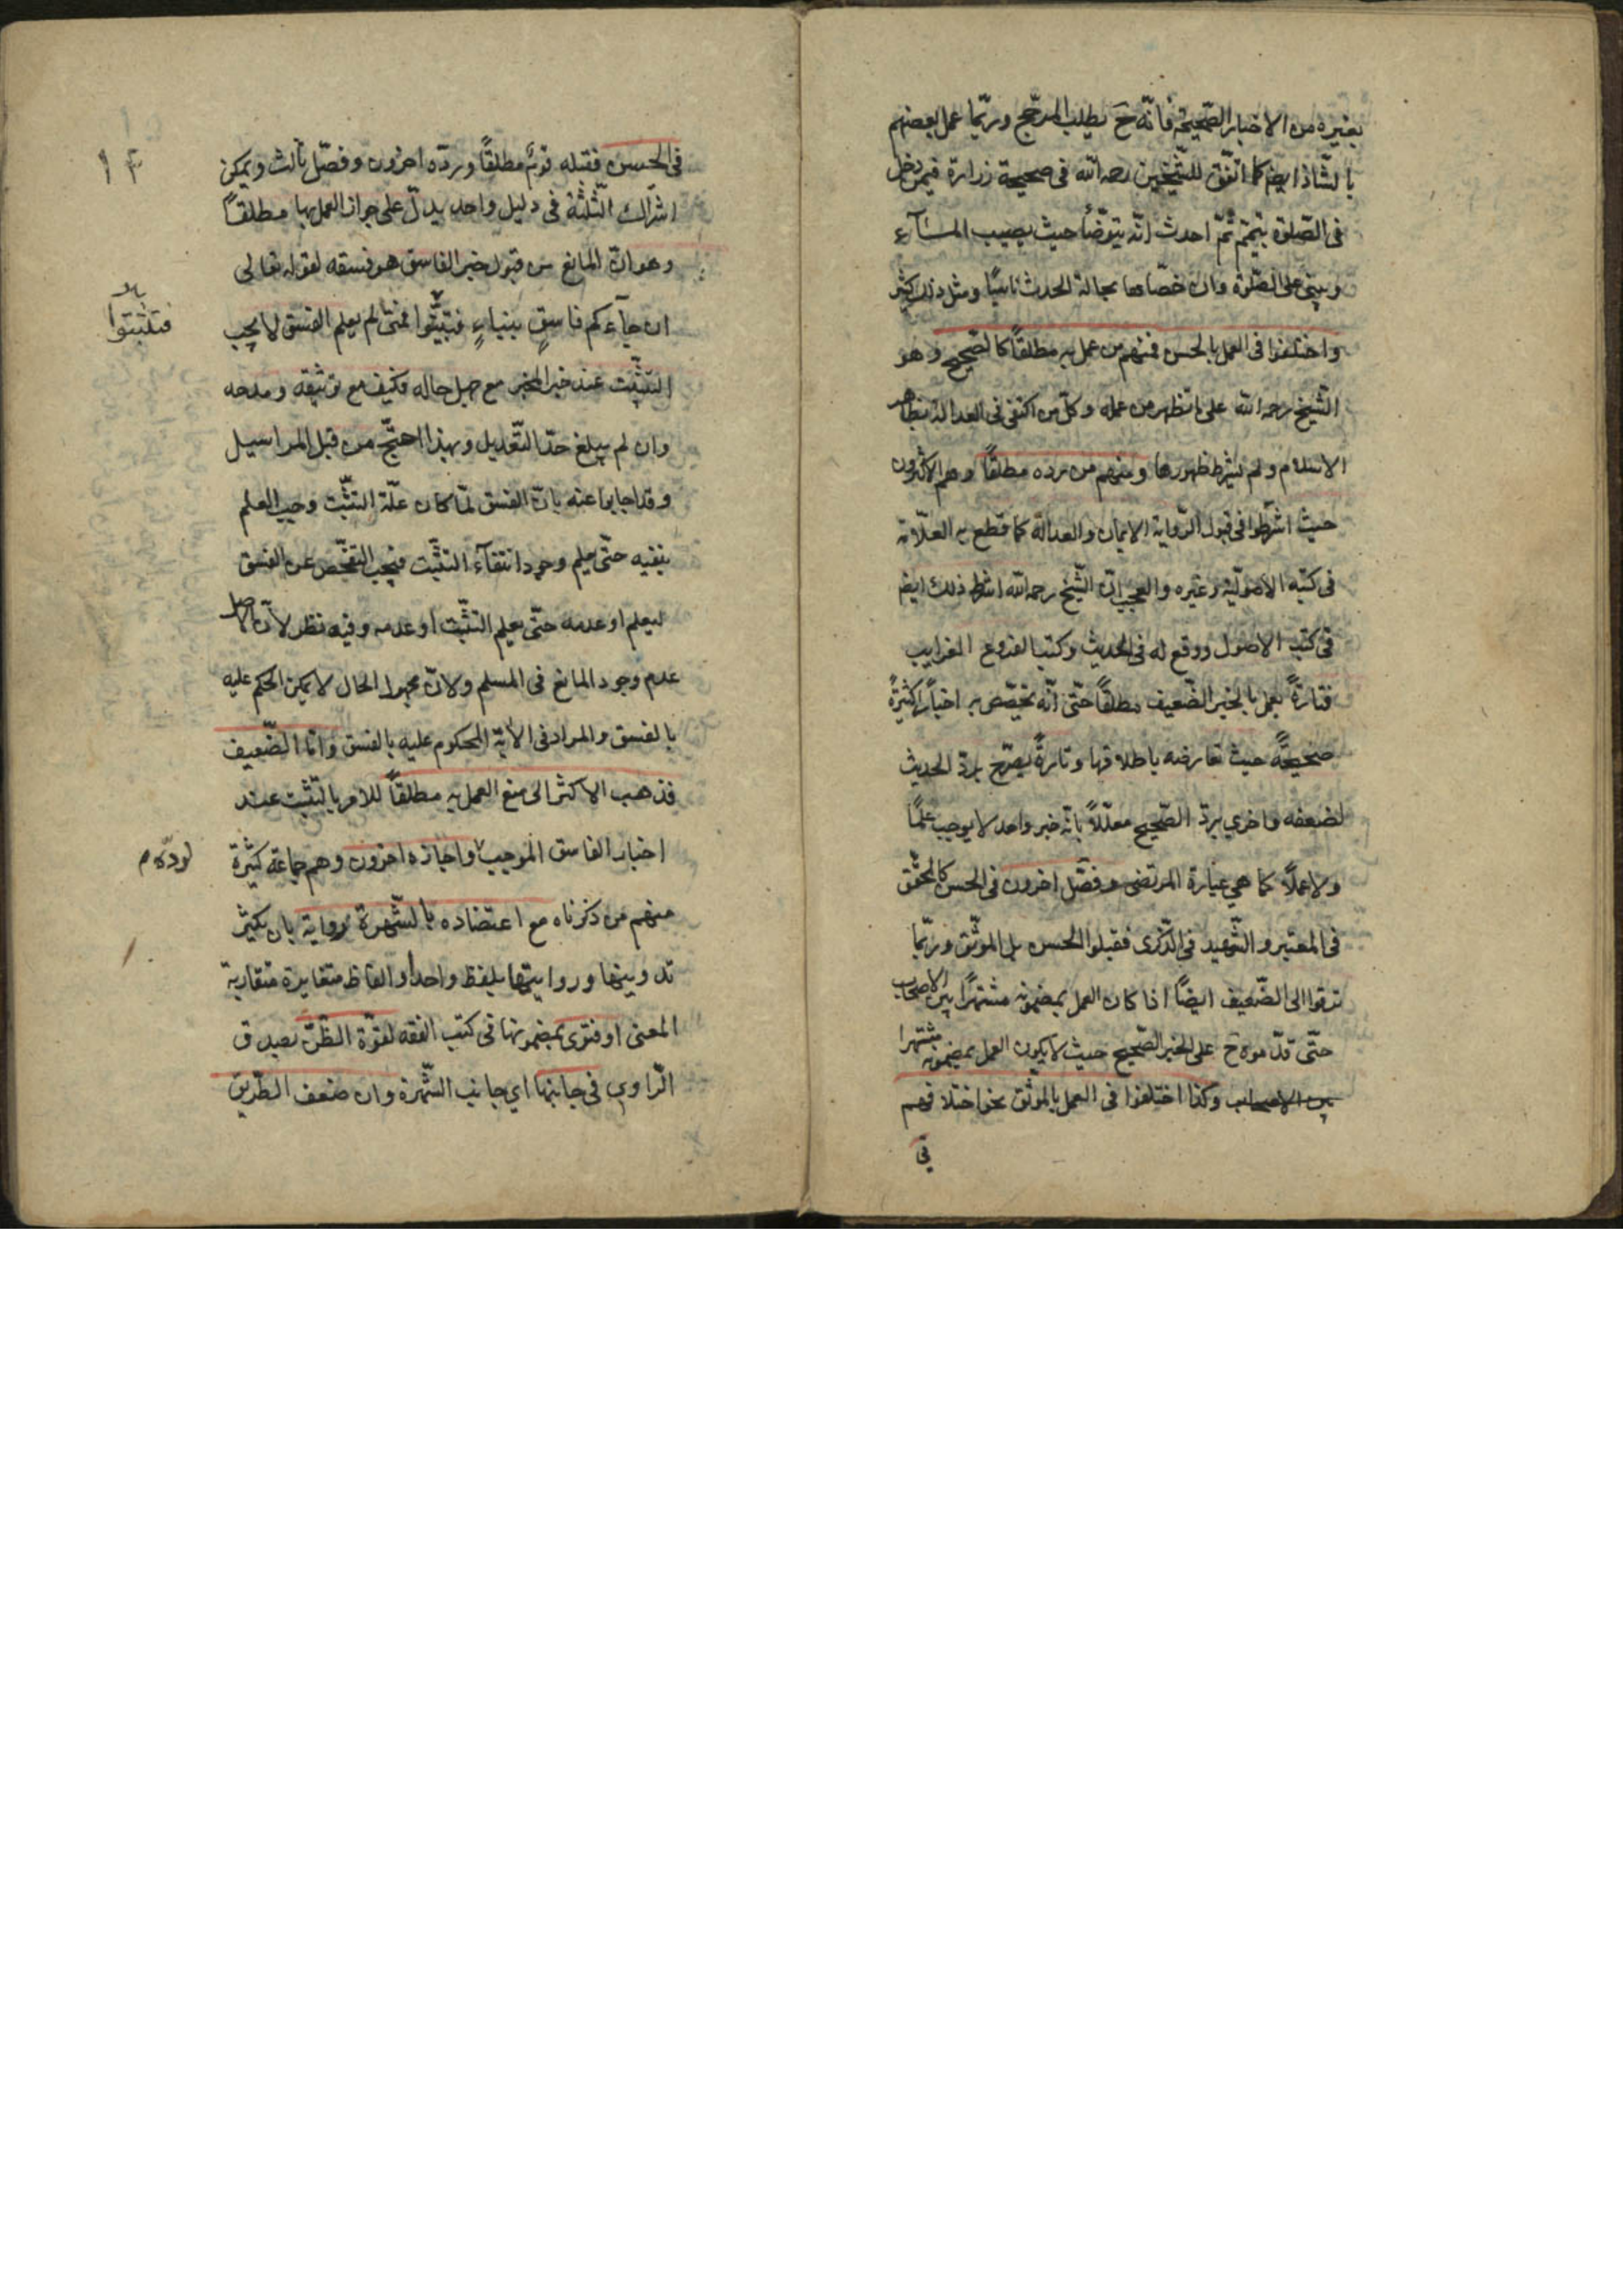 بغيره من الاخبار الصّحيحة فانّه ح يطلب المرجّح وربّما عمل بعضهم
بالشّاذ ايضم كما اتّفق للشّيخين رحمه اللّه فى صحيحة زرارة فيمن دخل
فى الصّلوة بتيمّم ثمّ احدث انّه يتوضّأ حيث يصيب المآء
ويبنى على الصّلوة وان خصّاها بحالة الحدث ناسيًا ومثل ذلك كثير
واختلفوا فى العمل بالحسن فمنهم من عمل به مطلقاً كالصّحيح وهو
الشّيخ رحمه اللّه على ما يظهر من عمله وكلّ من اكتفى فى العدالة بظاهر
الاسلام ولم يشترط ظهورها ومنهم من ردّه مطلقاً وهم الاكثرون
حيث اشترطوا فى قبول الرّواية الايمان والعدالة كما قطع به العلّامة
فى كتبه الاصوليّة وغيره والعجب انّ الشّيخ رحمه اللّه اشترط ذلك ايضم
فى كتب الاصول ووقع له فى الحديث وكتب الفروع الغرايب
فتارةً يعمل بالخبر الضّعيف مطلقاً حتّى انّه يخصّص به اخباراً كثيرةً
صحيحةً حيث تعارضه باطلاقها وتارةً يصرّح بردّ الحديث
لضعفه واخرى يردّ الصّحيح معلّلاً بانّه خبر واحد لا يوجب علمًا
ولا عملاً كما هى عبارة المرتضى وفصّل اخرون فى الحسن كالمحقّق
فى المعتبر والشّهيد فى الذّكرى فقبلوا الحسن بل الموثّق وربّما
ترقوا الى الضّعيف ايضًا اذا كان العمل بمضمونه مشتهرًا بين الاصحاب
حتّى قدّموه ح على الخبر الصّحيح حيث لا يكون العمل بمضمونه مشتهرا
بين الاصحاب وكذا اختلفوا فى العمل بالموثّق نحو اختلافهم
فى
١٣
فى الحسن فقبله قومٌ مطلقاً وردّه اخرون وفصّل ثالث ويمكن
اشتراك الثّلثة فى دليل واحد يدلّ على جواز العمل بها مطلقاً
وهو انّ المانع من قبول خبر الفاسق هو فسقه لقوله تعالى
ان جآءكم فاسقٍ بنباءٍ فتبيّنوا فمتى لم يعلم الفسق لا يجب
فتثبتوا
التثبّت عند خبر المخبر مع جهل حاله فكيف مع توثيقه ومدحه
وان لم يبلغ حدّ التّعديل وبهذا احتجّ من قبل المراسيل
وقد اجابوا عنه بانّ الفسق لمّا كان علّة التثبّت وجب العلم
بنفيه حتّى يعلم وجود انتفآء التثبّت فيجب التفحّص عن الفسق
ليعلم او عدمه حتّى يعلم التثبّت او عدمه وفيه نظر لانّ الاصل
عدم وجود المانع فى المسلم ولانّ مجهول الحال لا يمكن الحكم عليه
بالفسق والمراد فى الاية المحكوم عليه بالفسق وامّا الضّعيف
فذهب الاكثر الى منع العمل به مطلقاً للامر بالتثبّت عند
اخبار الفاسق الموجب واجازه اخرون وهم جماعة كثيرة
لردّه م
منهم من ذكرناه مع اعتضاده بالشّهرة رواية بان يكثر
تدوينها وروايتها بلفظ واحد او الفاظ متغايرة متقاربة
المعنى او فتوى بمضمونها فى كتب الفقه لقوّة الظّنّ بصدق
الرّاوى فى جانبها اى جانب الشّهرة وان ضعف الطّريق